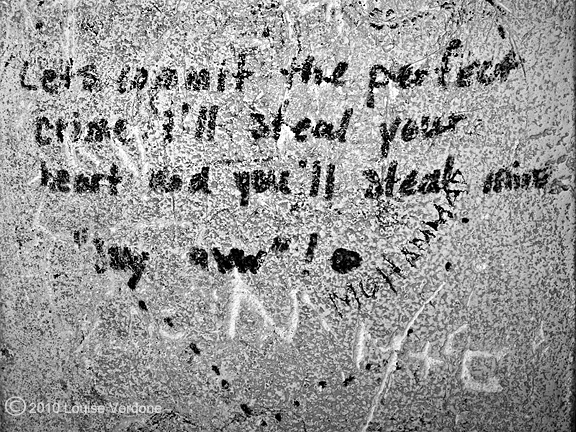 Lets commit the perfect
crime I'll steal your
heart and you'll steal mine
"Say aww"!
MOHAMMAD
N
H+C
© 2010 Louise Verdone